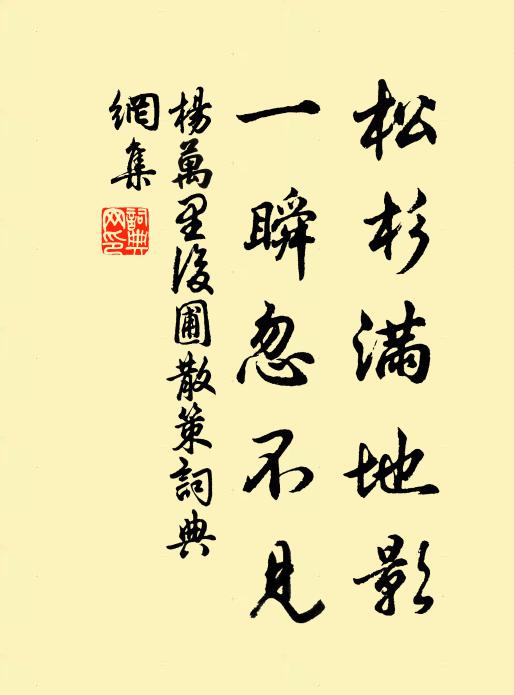 松杉滿地影
一瞬忽不見
楊萬里後圃散策詞典
網集
詞典
网印